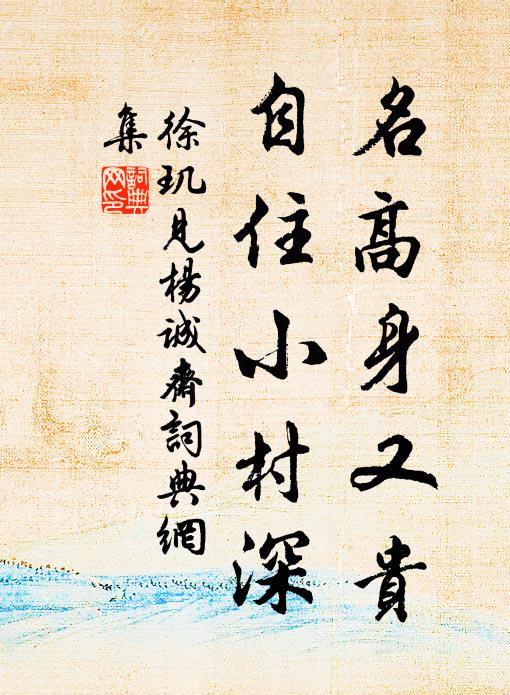 名高身又貴
自住小村深
徐玑見楊誠齋詞典網
集
詞典網印